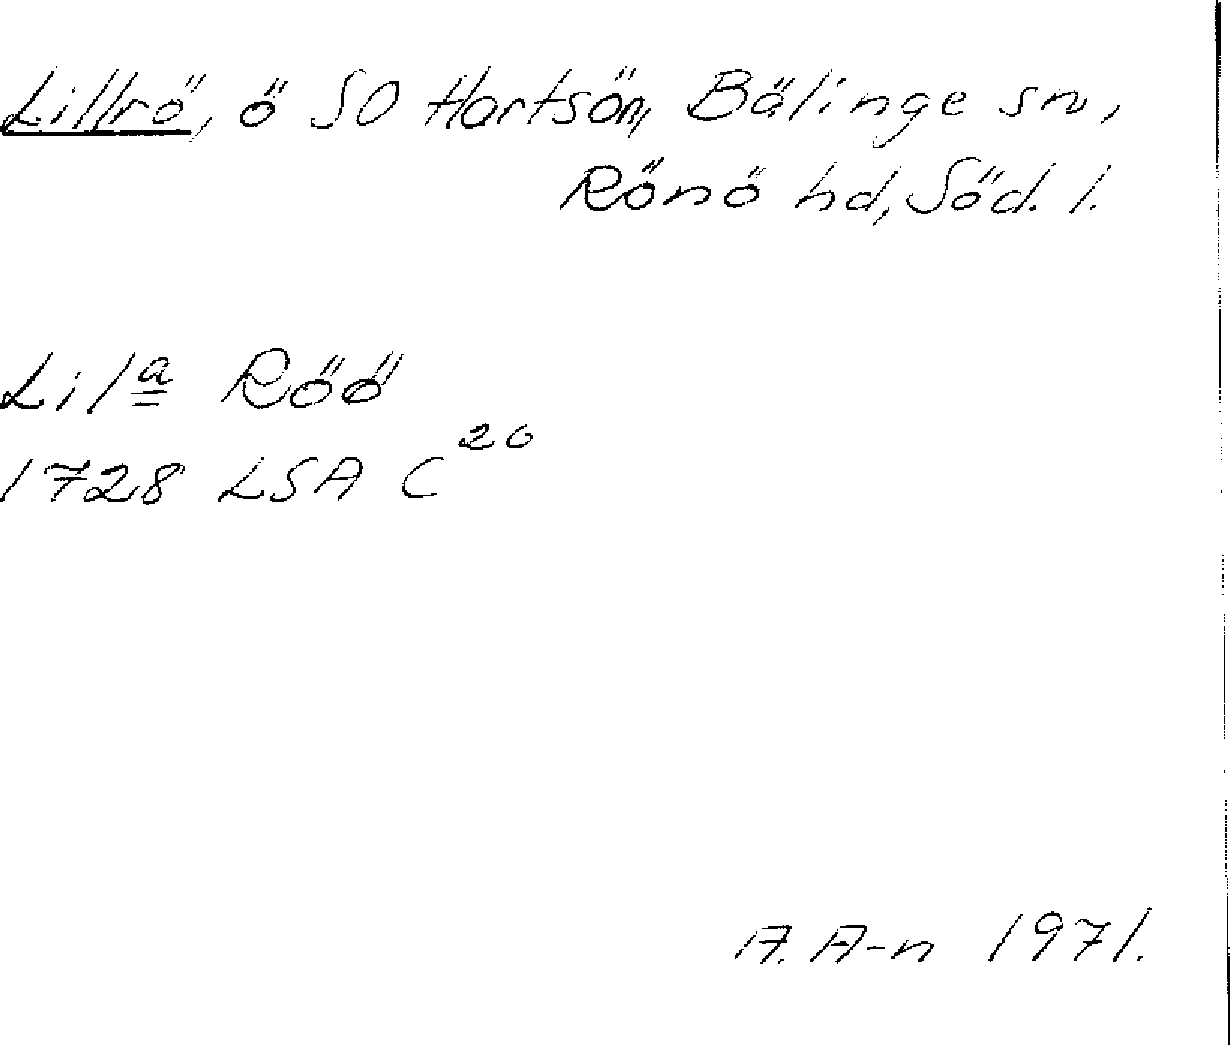 Lillrö, ö SO Hartsön, Bälinge sn,
Rönö hd, Söd. l.
Lilª Röö
1728 LSA C²⁰
A. A-n 1971.